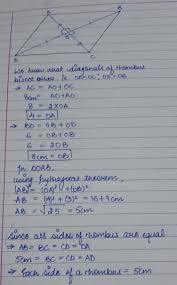 A
B
O
D
C
We know that diagonals of rhombus
bisect other. i.e. OA=OC; OB=OD
⇒ AC = AO+OC
8cm = AO+AO
8 = 2×OA
4 = OA
⇒ BD = OB+OD
6 = OB+OB
6 = 2OB
3cm = OB
In △OAB,
Using Pythagoras theorem,
(AB)² = (OA)² + (OB)²
AB = (4)² + (3)² = 16+9cm
AB = √25 = 5cm
Since all sides of rhombus are equal
⇒ AB = BC = CD = DA
5cm = BC = CD = AD
⇒ Each side of a rhombus = 5cm